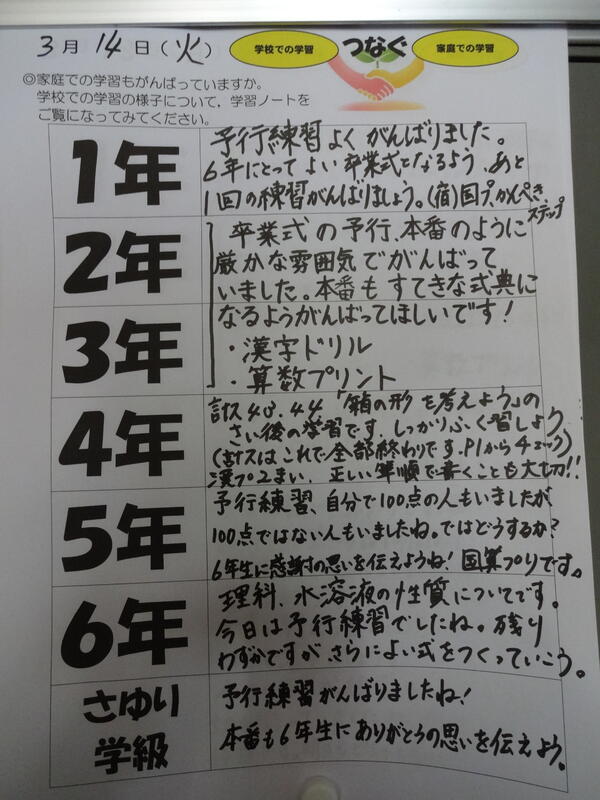 3月14日(火)
学校での学習
つなぐ
家庭での学習
◎家庭での学習もがんばっていますか。
学校での学習の様子について，学習ノートを
ご覧になってみてください。
1年
予行練習よくがんばりました。
6年にとってよい卒業式となるよう、あと
1回の練習がんばりましょう。(宿)国プ.かんぺき
ステップ
2年
3年
卒業式の予行、本番のように
厳かな雰囲気でがんばって
いました。本番もすてきな式典に
なるようがんばってほしいです！
・漢字ドリル
・算数プリント
4年
計ス43.44「箱の形を考えよう」の
さい後の学習です。しっかりふく習しよう
(計スはこれで全部終わりです.P1からチェック)
漢プ2まい、正しい筆順で書くことも大切!!
5年
予行練習、自分で100点の人もいましたが
100点ではない人もいましたね。ではどうするか？
6年生に感謝の思いを伝えようね！国算プリです。
6年
理科、水溶液の性質についてです。
今日は予行練習でしたね。残り
わずかですが、さらによい式をつくっていこう。
さゆり
学級
予行練習がんばりましたね！
本番も6年生にありがとうの思いを伝えよう。